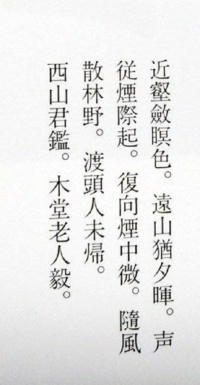 近壑斂瞑色。遠山猶夕暉。声
従煙際起。復向煙中微。隨風
散林野。渡頭人未帰。
西山君鑑。木堂老人毅。